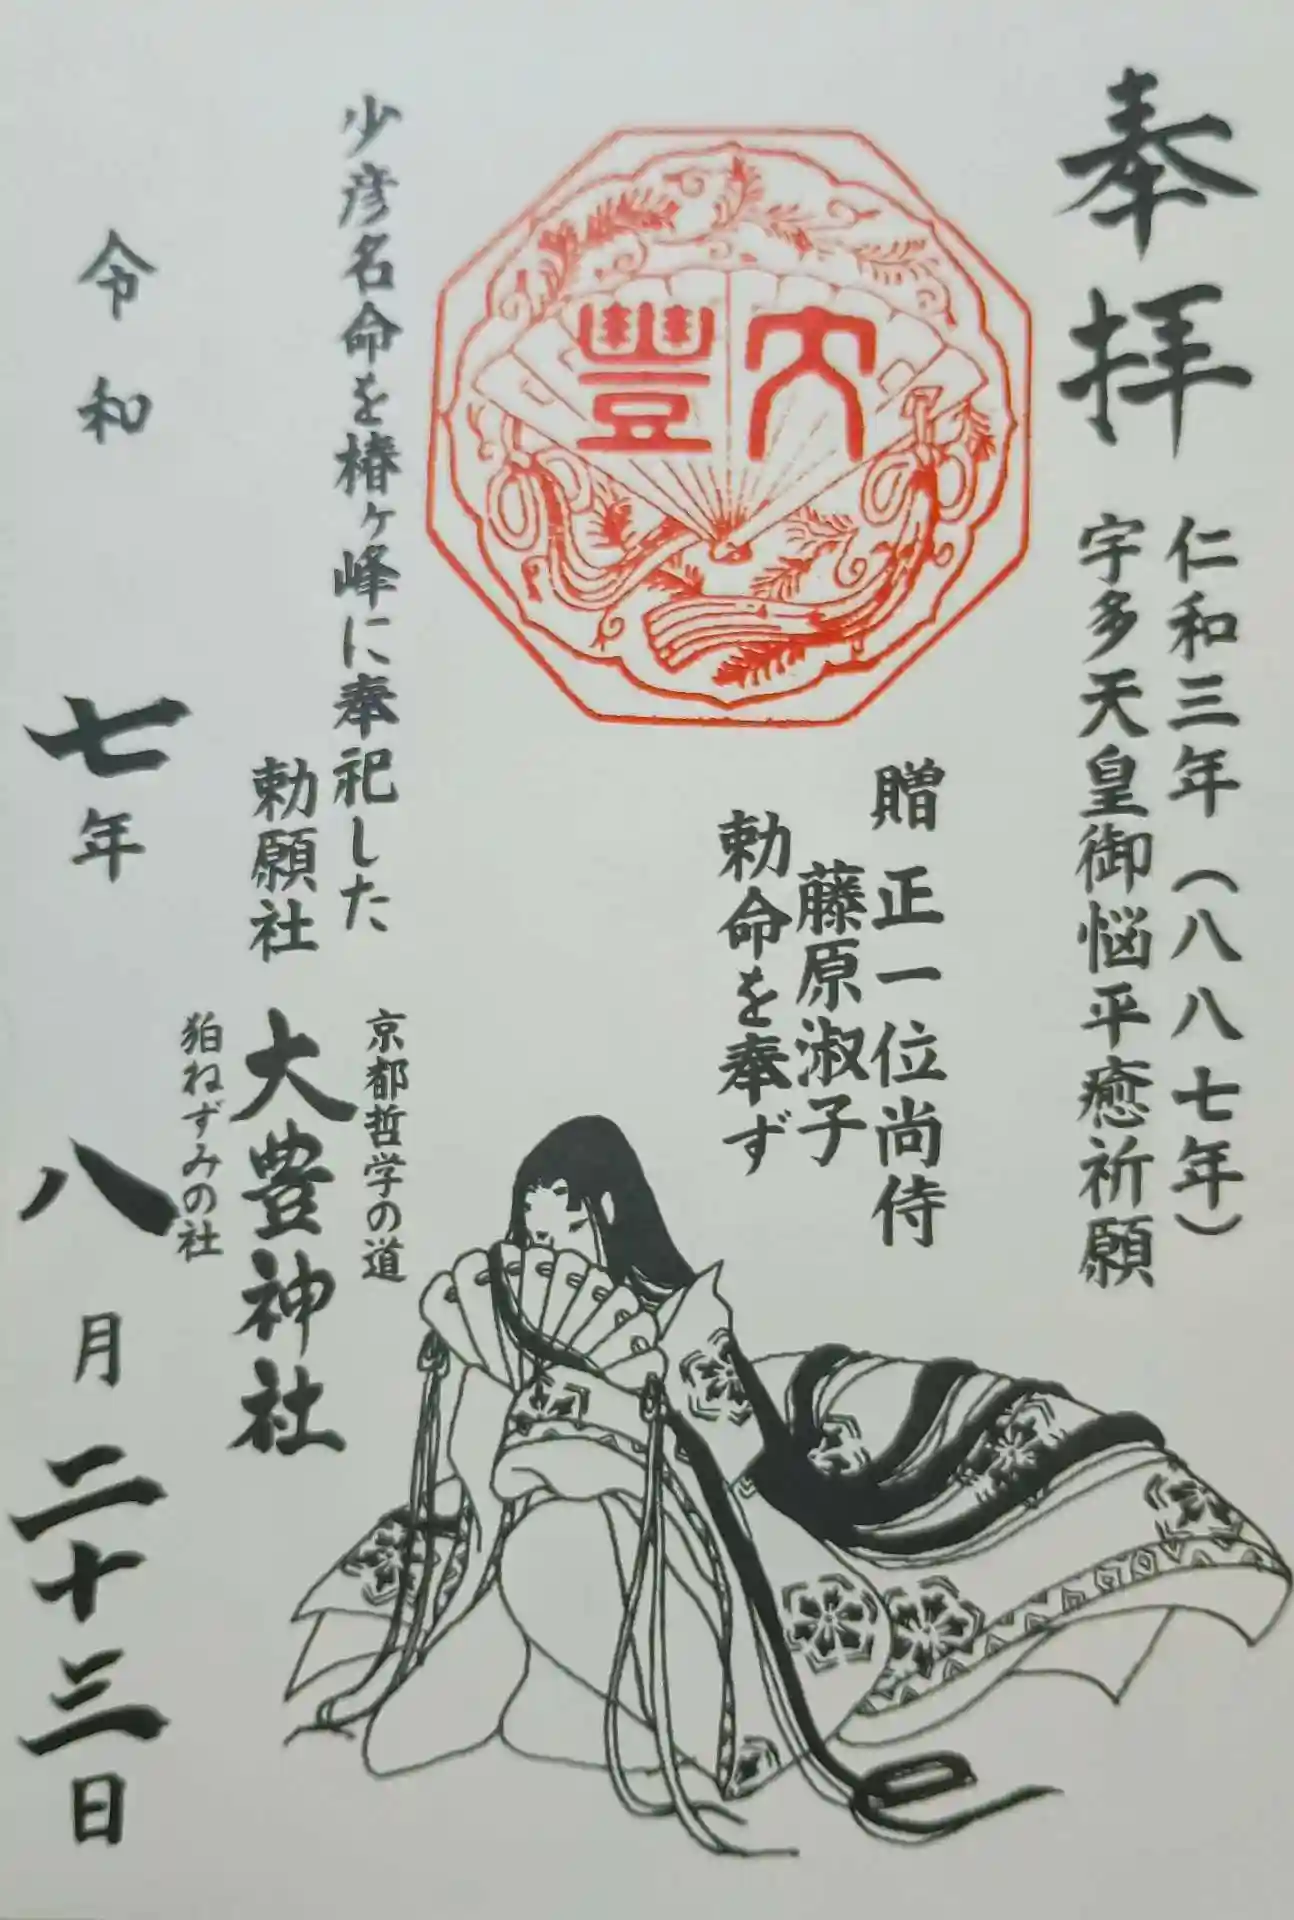 奉拝
仁和三年（八八七年）
宇多天皇御悩平癒祈願
大豐
贈 正一位尚侍
藤原淑子
勅命を奉ず
少彦名命を椿ヶ峰に奉祀した
勅願社
京都哲学の道
大豊神社
狛ねずみの社
令和七年八月二十三日